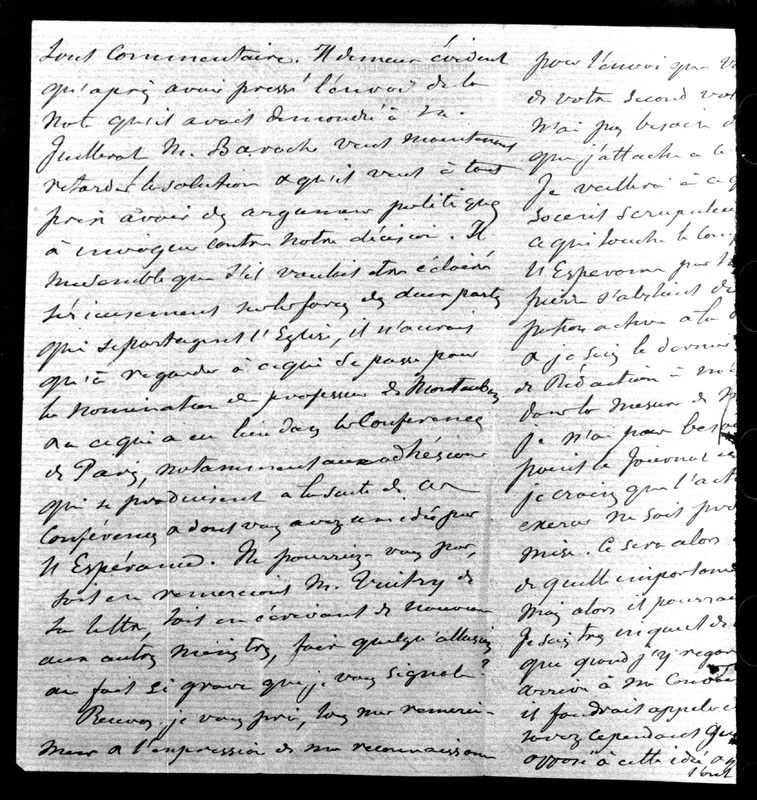 tout commentaire. Il demeure évident
qu'après avoir pressé l'envoi de la
Note qu'il avait demandée à
Juillerat M. Baroche veut maintenant
retarder la solution & qu'il veut à tout
prix avoir des argumens politiques
à invoquer contre notre décision. Il
me semble que s'il voulait être éclairé
sérieusement sur les forces des deux partis
qui se partagent l'Eglise, il n'aurait
qu'à regarder à ce qui se passe pour
la nomination du professeur de Montauban
& à ce qui a eu lieu dans les Conférences
de Paris, notamment aux adhésions
qui se produisent à la suite de ces
Conférences & dont vous avez une idée par
l'Espérance. Ne pourriez-vous pas,
soit en remerciant M. Vuitry de
sa lettre, soit en écrivant de nouveau
aux autres ministres, faire quelqu'allusion
au fait si grave que je vous signale?
Recevez je vous prie, tous mes remerci-
mens & l'expression de ma reconnaissance
pour l'envoi que v
de votre second
n'ai pas besoin d
que j'attache à
Je veillerai à
soient scrupuleu
ce qui touche le
l'Espérance
s'abstient de
active à la
& je suis le dernier
de Rédaction à
dans la mesure de
je n'ai pas beso
le Journal
je crains que l'act
exerce ne soit pro
mise. Ce sera alors
de quelle importance
mais alors il pourra
Je suis très inquiet de
que quand j'y regar
arrivé à ma
il faudrait appeler
savez cependant
opposé à cette idée
tout